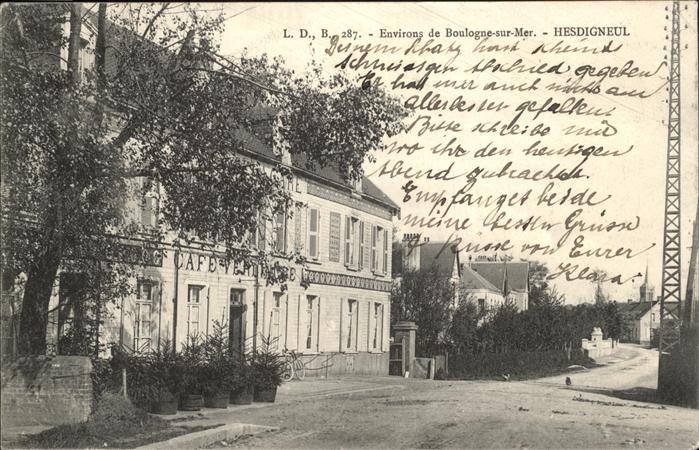 L. D., B., 287. - Environs de Boulogne-sur-Mer. - HESDIGNEUL
Deinem Schatz hast scheint
Abschied gegeben
Er hat mir auch nicht am
allerbesten gefallen
Bitte schreibe mir
wo ihr den heutigen
Abend gebracht.
Empfanget beide
meine besten Grüsse
Küsse von Eurer
CAFE